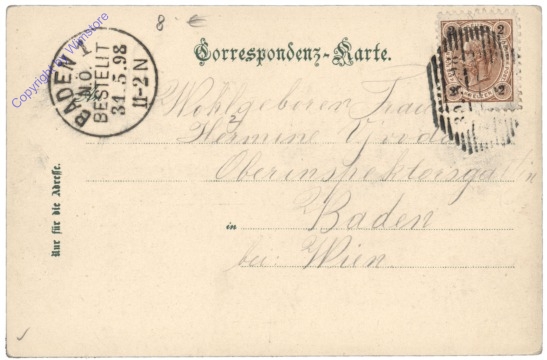 8 €
Correspondenz-Karte.
BADEN 1
N.Ö.
BESTELLT
31.5.98
11-2N
Copyright by Wnrstore
2 2
2 2
Wohlgeboren Frau
Hermine
Oberinspektorsgattin
in Baden
bei Wien
Nur für die Adresse.